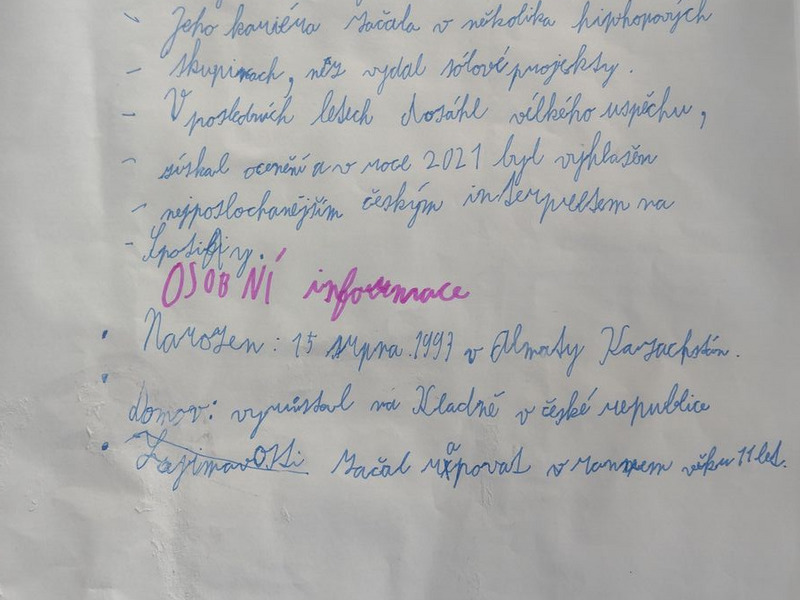 - Jeho kariéra začala v několika hiphopových
- skupinach, něž vydal sólové projekty.
- V posledních letech dosáhl vélkého uspěchu,
- získal ocenění a v roce 2021 byl vyhlašěn
- nejposlochanějším českým interpretem na
- Spotify.
OSOBNÍ informace
• Narozen: 15 srpna.1997 v Almaty Kazachstán.
• domov: vyrůstal na Kladně v české republice
• Zajimavosti začal rapovat v rannem věku 11 let.